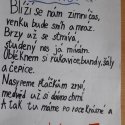 Blíží se nám zimní čas,
venku bude sníh a mráz.
Brzy už se stmívá,
studený nos já mívám.
Obleknem si rukavice, bundy, šály
a čepice.
Nasypeme ptáčkům zrní,
medvěd už si dávno chrní.
A tak tu máme po roce krásné a